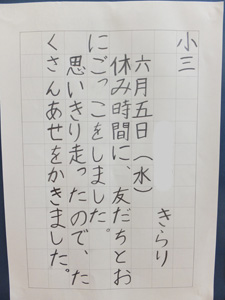 小三
きらり
六月五日(水)
休み時間に、友だちとお
にごっこをしました。
思いきり走ったので、た
くさんあせをかきました。